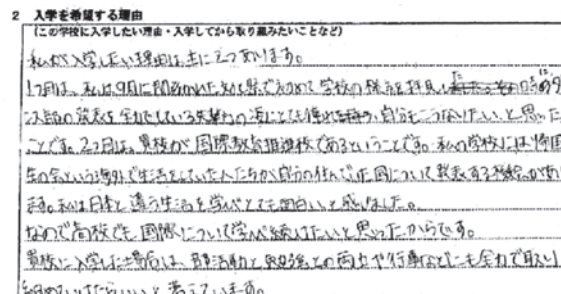 2 入学を希望する理由
(この学校に入学したい理由・入学してから取り組みたいことなど)
私が入学したい理由は主に2つあります。
1つ目は、私は9月に開かれた初めて学校の様子を拝見し
発表を全力でしている先輩方の姿にとても憧れを持ち、自分もこうなりたい、と思った
ことです。2つ目は、貴校が国際教育推進校であるということです。私の学校には帰国
生の会という海外で生活をしていた人たちが自分の住んでいた国について発表する機会があり
ます。私は日本と違う生活を学べとても面白いと感じました。
なので高校でも国際について学び続けたいと思ったからです。
貴校に入学した場合は、部活動と勉強との両立や行事などにも全力で取り
組めていけたらいいと考えています。